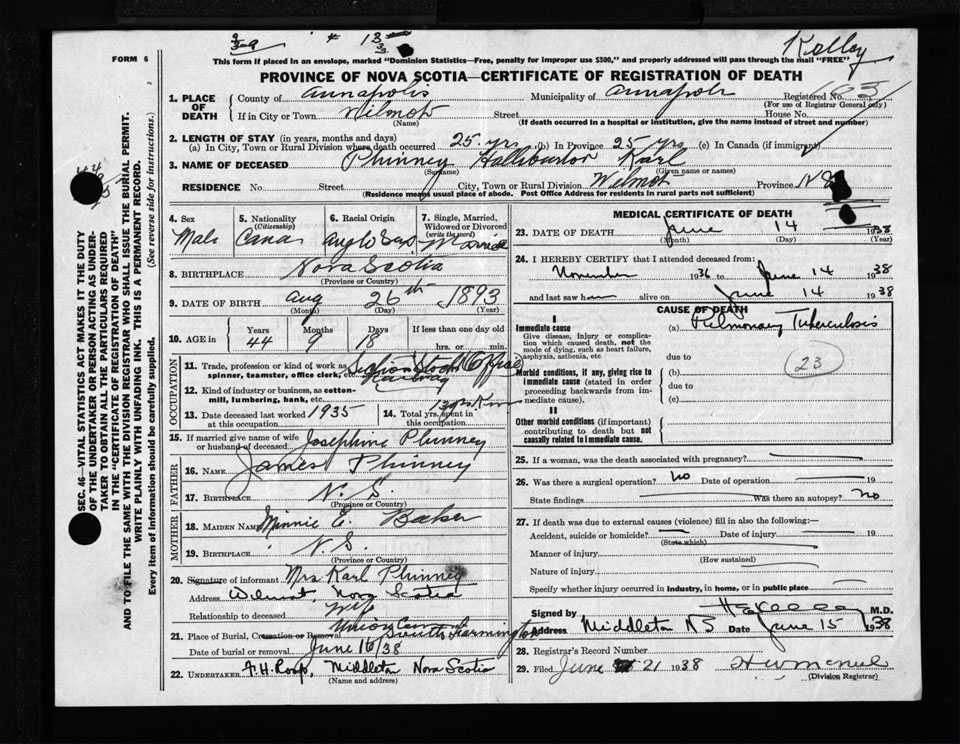 Kelley
FORM 6
This form if placed in an envelope, marked "Dominion Statistics—Free, penalty for improper use $300," and properly addressed will pass through the mail "FREE"
PROVINCE OF NOVA SCOTIA—CERTIFICATE OF REGISTRATION OF DEATH
1. PLACE OF DEATH County of Annapolis Municipality of Annapolis Registered No.
(For use of Registrar General only)
If in City or Town Wilmot Street House No.
(Name) (If death occurred in a hospital or institution, give the name instead of street and number)
2. LENGTH OF STAY (in years, months and days)
(a) In City, Town or Rural Division where death occurred 25 yrs (b) In Province 25 yrs (c) In Canada (if immigrant)
3. NAME OF DECEASED Phinney Halliburton Karl
(Surname) (Given name or names)
RESIDENCE No. Street City, Town or Rural Division Wilmot Province N S
(Residence means usual place of abode. Post Office Address for residents in rural parts not sufficient)
4. Sex Male
5. Nationality (Citizenship) Cana
6. Racial Origin Anglo Sax
7. Single, Married, Widowed or Divorced (write the word) Married
8. BIRTHPLACE Nova Scotia
(Province or Country)
9. DATE OF BIRTH Aug 26th 1893
(Month) (Day) (Year)
10. AGE in Years Months Days If less than one day old
44 9 18 hrs. or min.
OCCUPATION
11. Trade, profession or kind of work as spinner, teamster, office clerk, etc. Railway
12. Kind of industry or business, as cotton-mill, lumbering, bank, etc.
13. Date deceased last worked at this occupation 1935
14. Total yrs. spent in this occupation
15. If married give name of wife or husband of deceased Josephine Phinney
FATHER
16. NAME James Phinney
17. BIRTHPLACE N. S.
(Province or Country)
MOTHER
18. MAIDEN NAME Minnie C. Baker
19. BIRTHPLACE N. S.
(Province or Country)
20. Signature of informant Mrs Karl Phinney
Address Wilmot, Nova Scotia
Relationship to deceased Wife
21. Place of Burial, Cremation or Removal Union Cemet South Farmington
Date of burial or removal June 16/38
22. UNDERTAKER F. H. Roop, Middleton Nova Scotia
(Name and address)
MEDICAL CERTIFICATE OF DEATH
23. DATE OF DEATH June 14 1938
(Month) (Day) (Year)
24. I HEREBY CERTIFY that I attended deceased from:
November 1936 to June 14 1938
and last saw h alive on June 14 1938
CAUSE OF DEATH
I
Immediate cause
Give disease, injury or complication which caused death, not the mode of dying, such as heart failure, asphyxia, asthenia, etc.
(a) Pulmonary Tuberculosis
due to
23
Morbid conditions, if any, giving rise to immediate cause (stated in order proceeding backwards from immediate cause).
(b)
due to
(c)
II
Other morbid conditions (if important) contributing to death but not causally related to immediate cause.
25. If a woman, was the death associated with pregnancy?
26. Was there a surgical operation? No Date of operation 19
State findings Was there an autopsy? No
27. If death was due to external causes (violence) fill in also the following:—
Accident, suicide or homicide? Date of injury 19
(State which)
Manner of injury
(How sustained)
Nature of injury
Specify whether injury occurred in industry, in home, or in public place
Signed by M.D.
Address Middleton N S Date June 15 1938
28. Registrar's Record Number
29. Filed June 21 1938
(Division Registrar)
SEC. 46—VITAL STATISTICS ACT MAKES IT THE DUTY
OF THE UNDERTAKER OR PERSON ACTING AS UNDERTAKER TO OBTAIN ALL THE PARTICULARS REQUIRED
IN THE "CERTIFICATE OF REGISTRATION OF DEATH"
AND TO FILE THE SAME WITH THE DIVISION REGISTRAR WHO SHALL ISSUE THE BURIAL PERMIT.
WRITE PLAINLY WITH UNFADING INK. THIS IS A PERMANENT RECORD.
Every item of information should be carefully supplied. (See reverse side for instructions.)